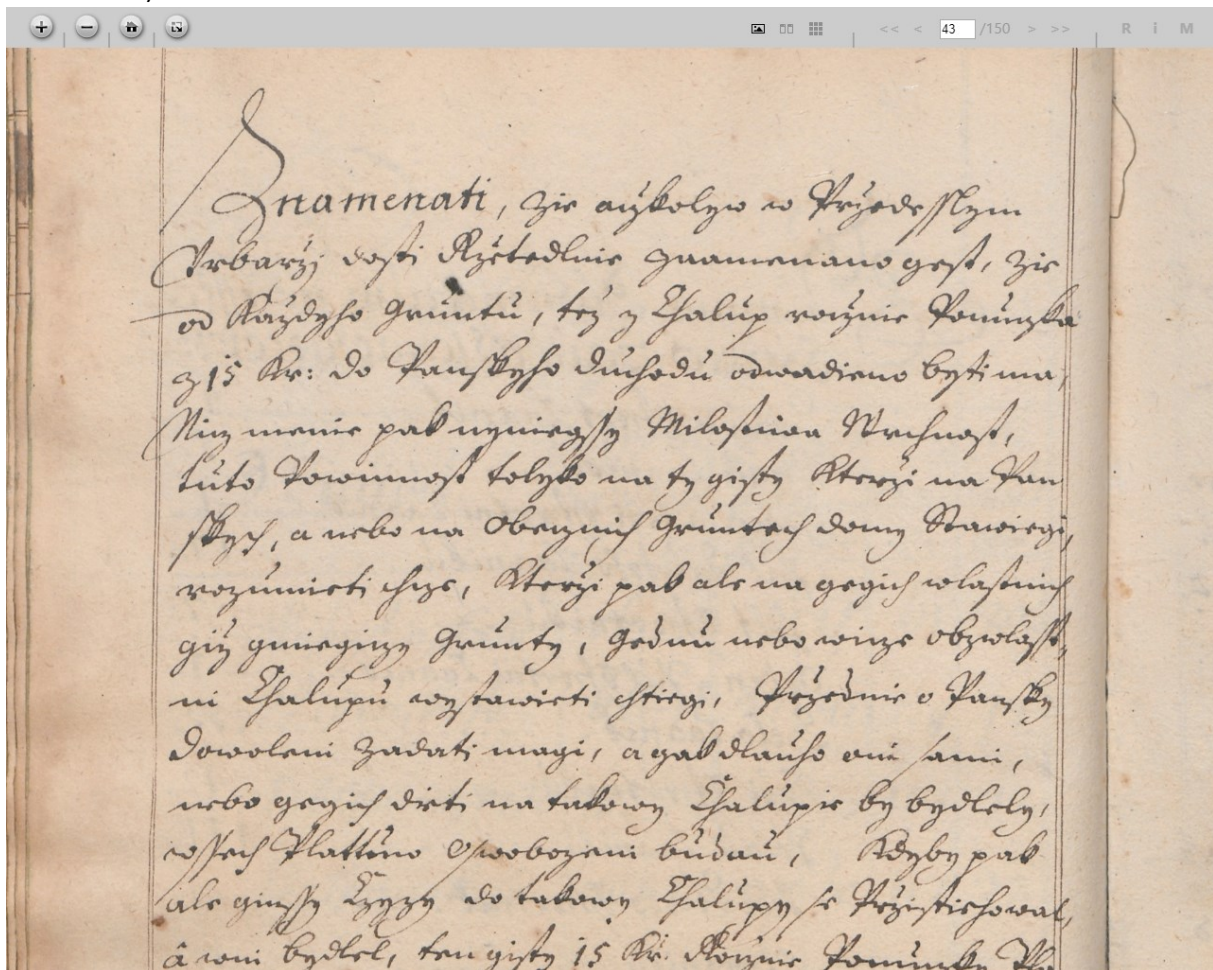 43 /150 R i M
Znamenati, zie aczkolyw w Przedesslym
Vrbarzy dosti Rzetedlnie znamenano gest, zie
od Kazdyho Gruntu, tez z Chalup rocznie Ponuczka
z 15 Kr: do Panskyho duchodu odwadieno byti ma,
Nicz menie pak nyniegssy Milostiwa Wrchnost,
tuto Powinnost tolyko na ty gisty Kterzi na Pan
skych, a nebo na Obecznich Gruntech domy Stawiegi,
rozumieti chcze, Kterzi pak ale na gegich wlastnich
giz gmiegiczy Grunty, Gednu nebo wicze obzwlasst,
ni Chalupu wystawieti chtiegi, Przednie o Pansky
dowoleni Zadati magi, a gak dlauho oni sami,
nebo gegich dieti na takowy Chalupie by bydlely,
wssech Plattuno Oswobozeni budau, Kdyby pak
ale ginssy Czyzy do takowy Chalupy se Przistiehowal,
a w ni bydlel, ten gisty 15 Kr: Rocznie Ponuczky